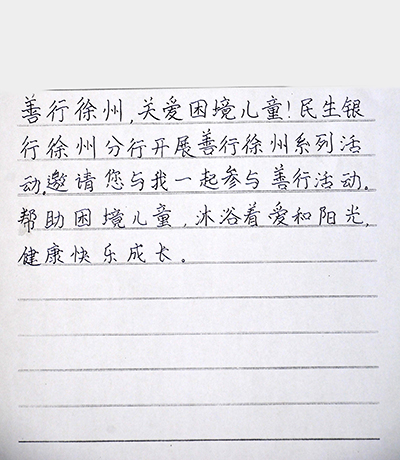 善行徐州,关爱困境儿童!民生银
行徐州分行开展善行徐州系列活
动.邀请您与我一起参与善行活动.
帮助困境儿童,沐浴着爱和阳光,
健康快乐成长。